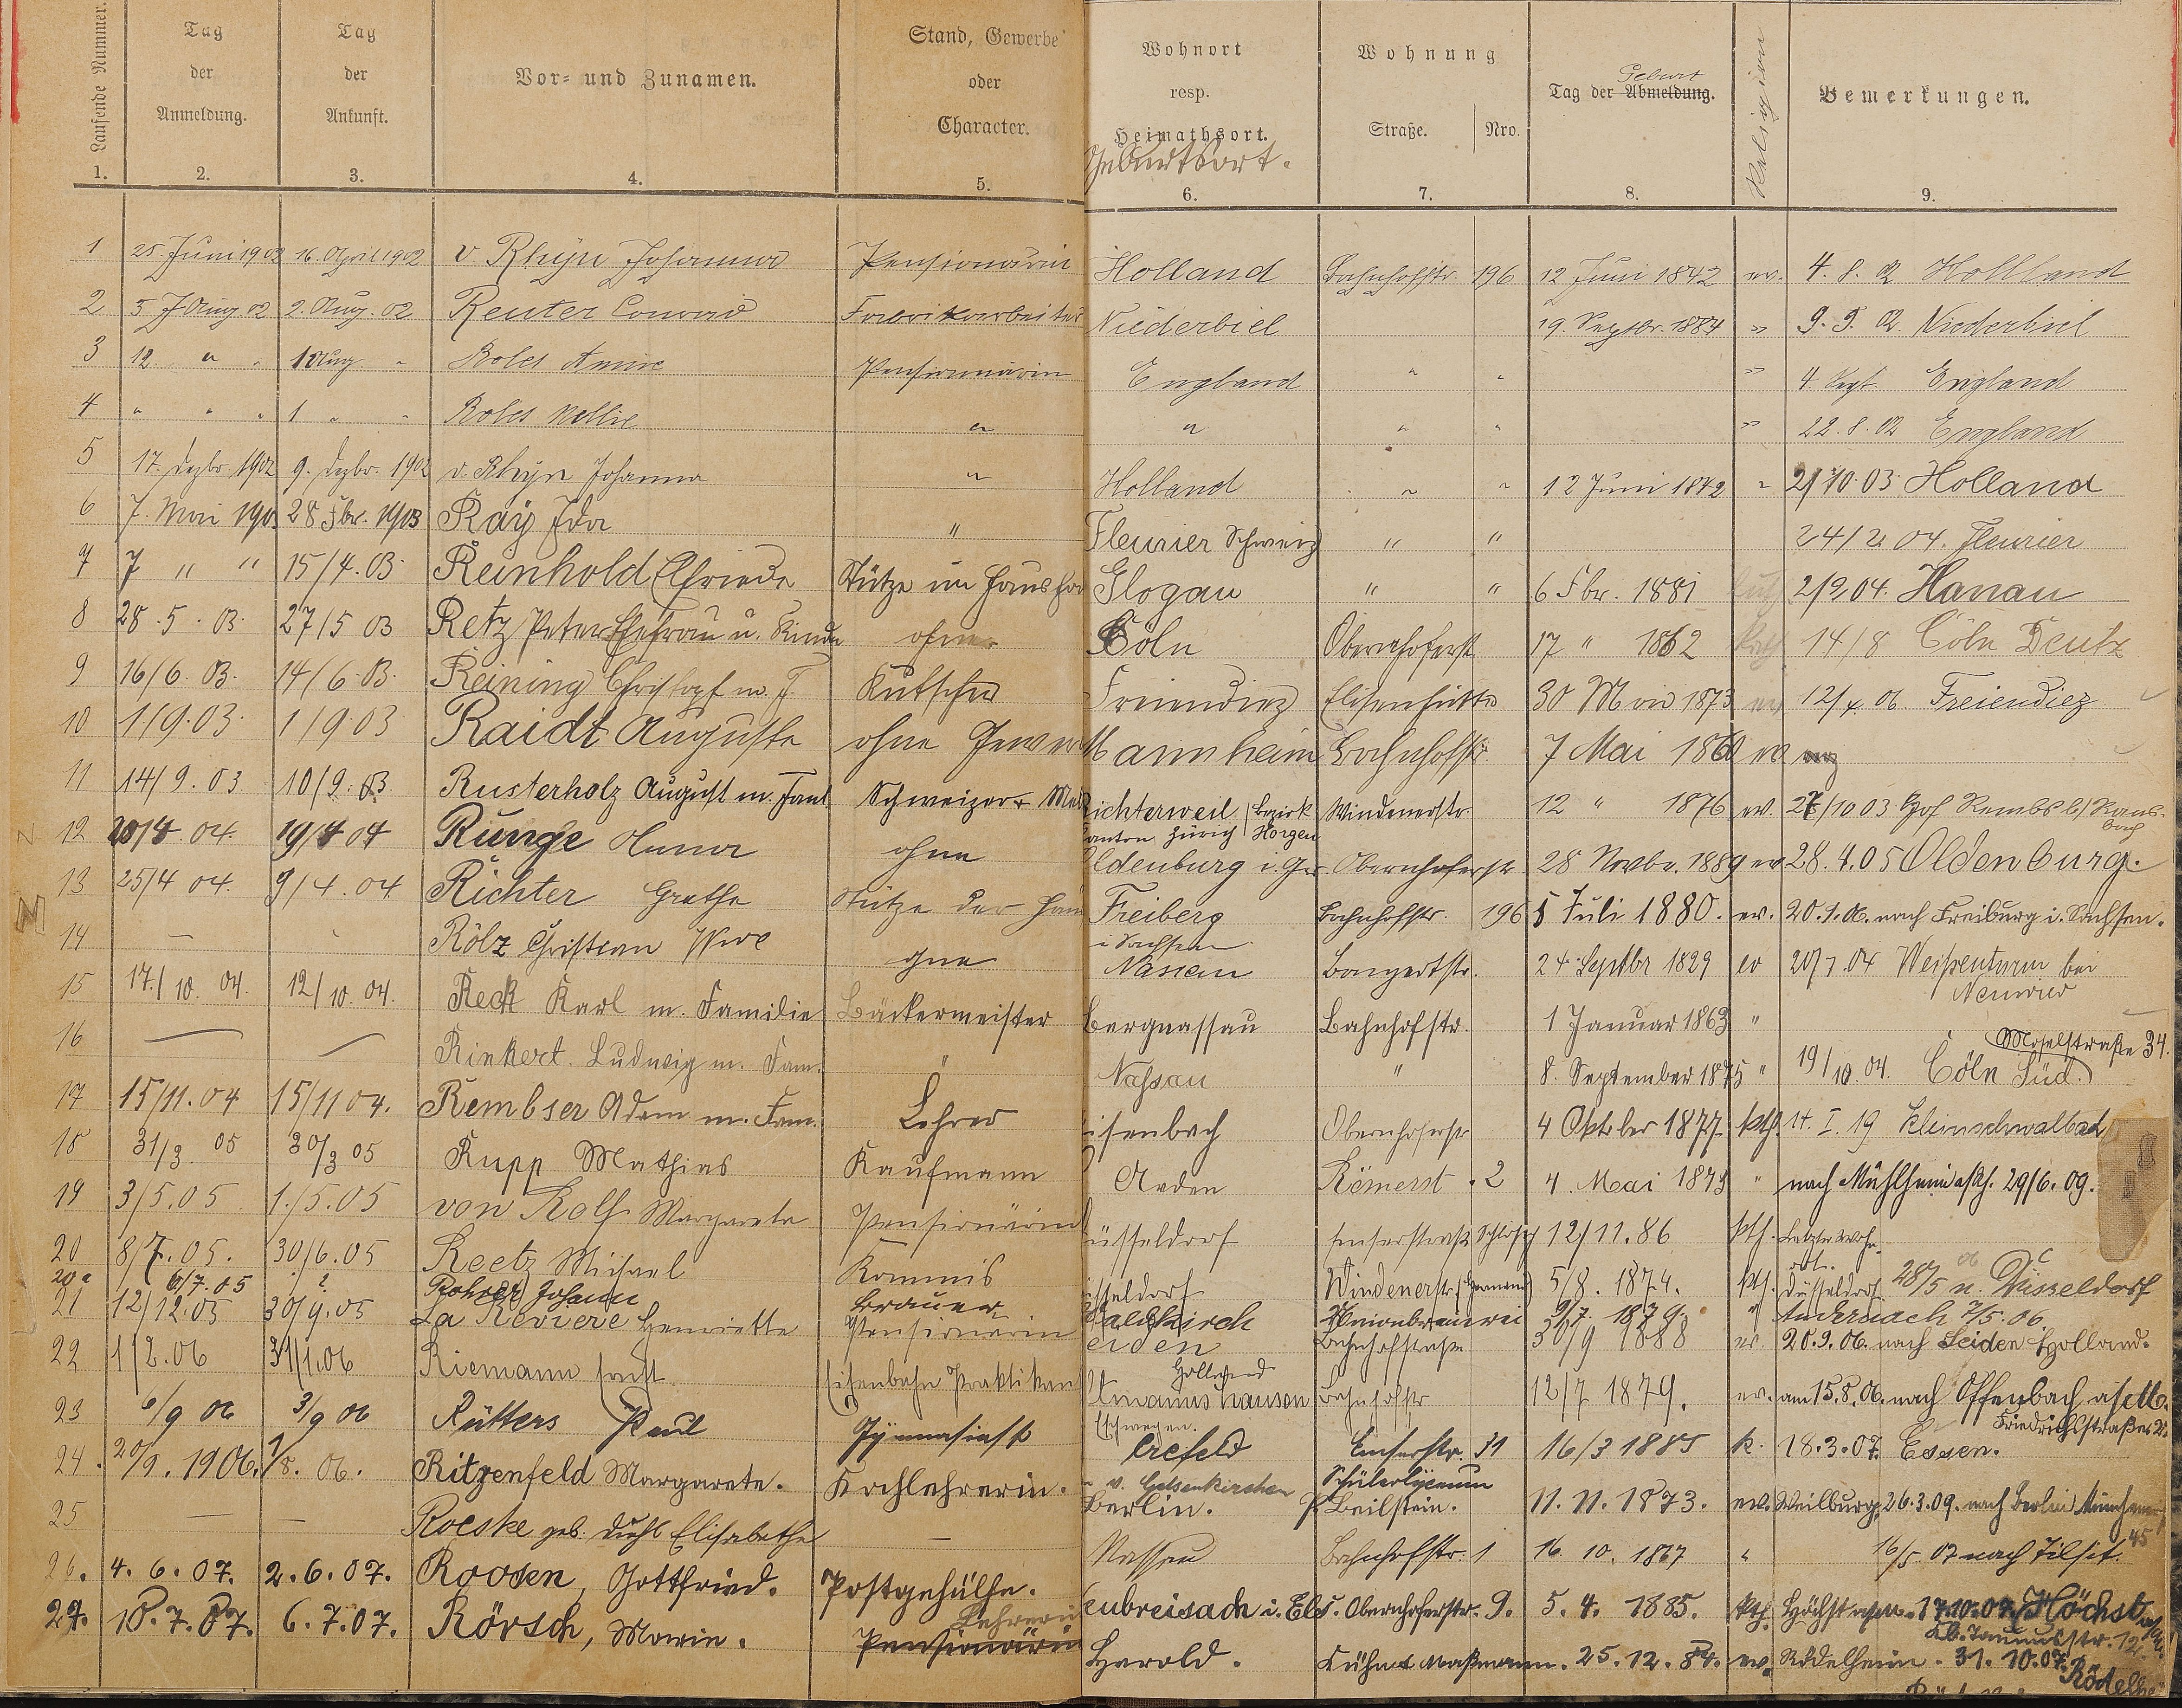 Laufende Nummer. Tag der Anmeldung. Tag der Ankunft. Vor- und Zunamen. Stand, Gewerbe oder Character. Wohnort resp. Heimathsort. Geburtsort. Wohnung Straße. Nro. Tag der Abmeldung. Geburt Religion Bemerkungen.
1. 2. 3. 4. 5. 6. 7. 8. 9.
1 25. Juni 1902 16. April 1902 v Rhijn Johanna Pensionärin Holland Bahnhofstr. 196 12 Juni 1842 ev. 4. 8. 02 Holland
2 5 Aug 02 2. Aug. 02 Reuter Conrad Fabrikarbeiter Niederbiel 19. Septbr. 1884 " 9. 9. 02 Niederbiel
3 12. " " 1 Aug " Boles Annie Pensionärin England " " " 4 Sept. England
4 " " " 1 " " Boles Nellie " " " " " 22. 8. 02 England
5 17. Dezbr. 1902 9. Dezbr. 1902 v. Rhijn Johanna " Holland " " 12 Juni 1842 " 2/10. 03 Holland
6 7. Mai 1903 28 Fbr. 1903 Ray Ida " Fleurier Schweiz " " 24/2 04. Fleurier
7 7 " " 15/4. 03. Reinhold Elfriede Stütze im Haush Glogau " " 6 Fbr. 1881 2/9. 04. Hanau
8 28. 5. 03. 27/5 03 Retz Peter Ehefrau u. Kinder ohne Cöln Obernhoferst 17 " 1862 kath 14/8 Cöln Deutz
9 16/6. 03. 14/6. 03. Reining Christoph m. F. Kutscher Freiendiez Elisenhütte 30 Mai 1873 ev 12/4. 06. Freiendiez
10 1/9. 03. 1/9 03 Raidt Auguste ohne Gewer Mannheim Bahnhofstr. 7 Mai 1860 ev
11 14/9. 03 10/9. 03 Rusterholz August m. Faml Schweizer Richterweil Bezirk Horgen Kanton Zürich Windenerstr. 12 " 1876 ev. 27/10 03 Hof Rembs b/ Ransbach
12 20/4. 04. 19/4 04 Runge Anna ohne Oldenburg i. Gr. Obernhoferstr. 28 Novbr. 1889 ev. 28. 4. 05 Oldenburg.
13 25/4 04. 9/4. 04. Richter Grethe Stütze der Hau Freiberg i Sachsen Bahnhofstr. 196 5 Juli 1880. ev. 20. 1. 06. nach Freiburg i. Sachsen.
14 — Rölz Christian Wwe ohne Nassau Bongertstr. 24 Septbr 1829 ev 20/7. 04 Weißenturm bei Neuwied
15 17./10. 04. 12/10. 04. Reck Karl m. Familie Bäckermeister Bergnassau Bahnhofstr. 1 Januar 1863 "
16 — — Rinkert. Ludwig m. Fam. " Nassau " 8. September 1875 " 19/10. 04. Cöln Süd. Moselstraße 34.
17 15/11. 04 15/11 04. Rembser Adam m. Fam. Lehrer isenbach Obernhoferstr 4 Oktober 1877 kth. 14. I. 19 Kleinschwalbach
18 31/3. 05 30/3 05 Rupp Mathias Kaufmann Arden Römerst. 2 4. Mai 1879 " nach Mühlheim a/Rh. 29/6. 09.
19 3/5. 05 1./5. 05 von Rolf Margareta Pensionärin Düsseldorf Emserstraße Schloß 12/11. 86 kth. Letzter Wohnort.
20 8/7. 05. 30/6. 05 Reetz Michael Kommis Düsseldorf Windenerstr. (Hermann) 5/8. 1874. kth. Düsseldorf 28/5 06 n. Düsseldorf
20a 6/7. 05 ? Rohrer Johann Brauer Waldkirch Unionbrauerei 9/7. 1879. " Andernach 7/5. 06.
21 12/12. 05 30/9. 05 La Reviere Henriette Pensionärin Leiden Holland Bahnhofstraße 30/9 1888 ev. 20. 9. 06. nach Leiden Holland.
22 1/2. 06 31/1. 06 Riemann Ernst. Eisenbahn Praktikant manushausen Eschwegen. Bahnhofstr 12/7 1879. ev. am 15. 8. 06. nach Offenbach a/M. Friedrichstraße
23 6/9 06 3/9 06 Rütters Paul Gymnasiast Crefeld Emserstr. 31 16/3 1885 k. 18. 3. 07. Essen.
24. 20/9. 1906. 1/8. 06. Ritzenfeld Margarete. Kochlehrerin. v. Gelsenkirchen Berlin. Schülerlyceum Beilstein. 11. 11. 1873. ev. Weilburg 26. 3. 09. nach Berlin Münchener 45
25 — — Roeske geb. Diehl Elisabethe — Nassau Bahnhofstr. 1 16. 10. 1867 " 16/5. 07 nach Tilsit.
26. 4. 6. 07. 2. 6. 07. Roosen, Gottfried. Postgehülfe. Neubreisach i. Els. Obernhoferstr. 9. 5. 4. 1885. kth. Höchst a/M. 17. 10. 07. Höchst a/M. Kl. Taunusstr. 12.
27. 10. 7. 07. 6. 7. 07. Rörsch, Marie. Lehrerin Pensionärin Herold. Kühn & Maßmann. 25. 12. 84. ev. Rödelheim. 31. 10. 07. Rödelhei